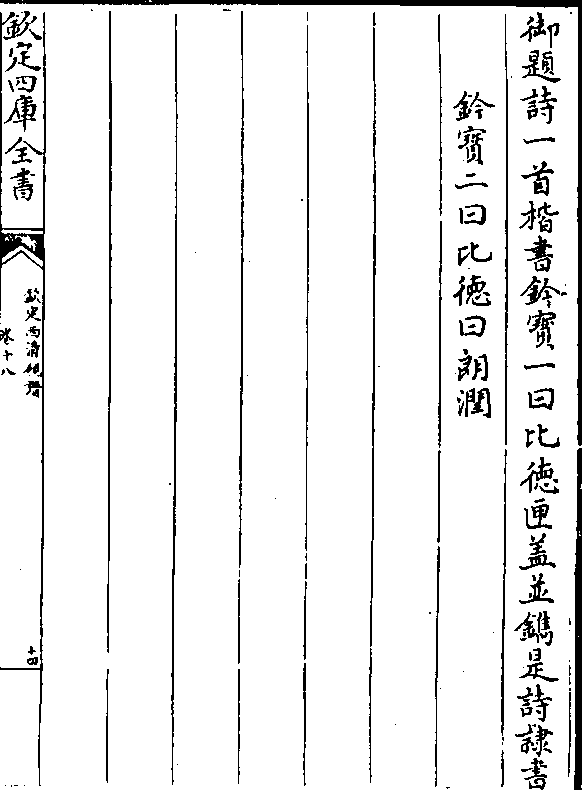 御題詩一首楷書鈐寳一曰比徳匣盖並鐫是詩隷書
鈐寳二曰比徳曰朗潤
欽定四庫全書
欽定西清硯譜
卷十八
十四